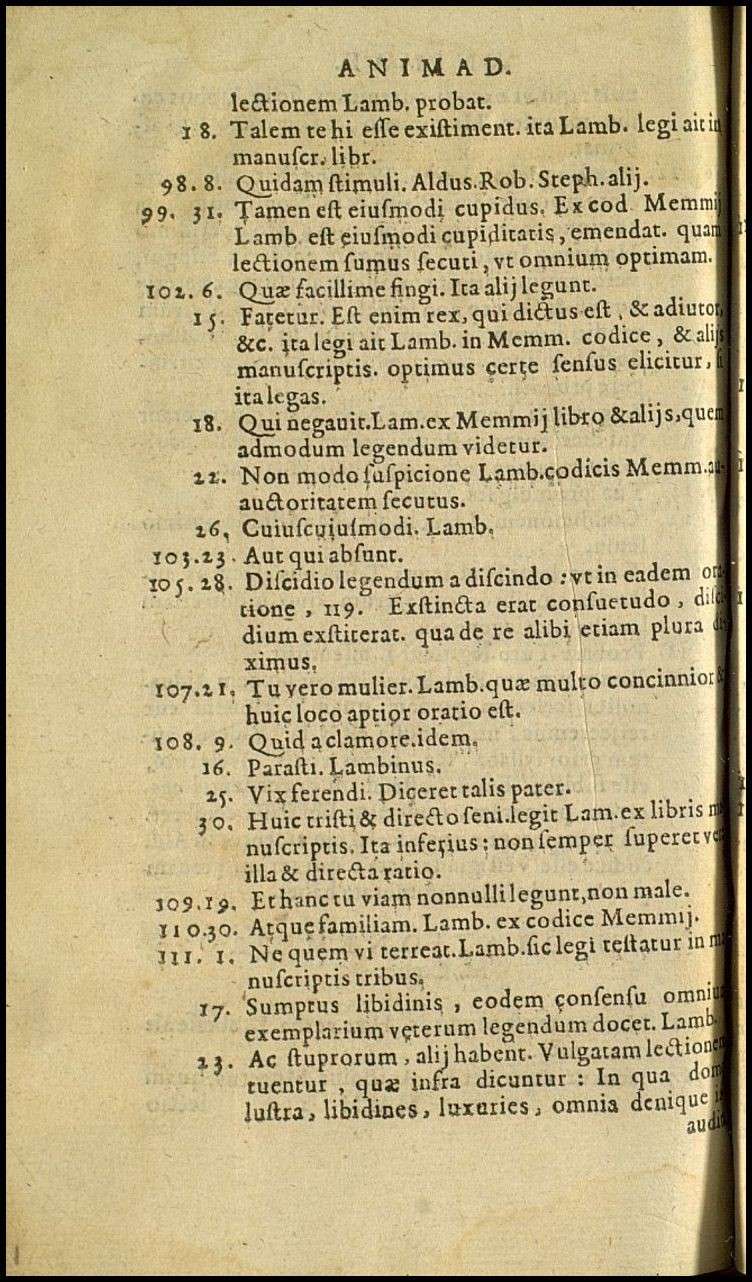 ANIMAD.
lectionem Lamb. probat.
18. Talem te hi eſſe exiſtiment. ita Lamb. legi ait in
manuſcr. libr.
98. 8. Quidam ſtimuli. Aldus. Rob. Steph. alij.
99. 31. Tamen eſt eiuſmodi cupidus. Ex cod Memmij
Lamb eſt eiuſmodi cupiditatis, emendat. quam
lectionem ſumus ſecuti, vt omnium optimam.
102. 6. Quæ facillime fingi. Ita alij legunt.
15. Fatetur. Eſt enim rex, qui dictus eſt, & adiutor,
&c. ita legi ait Lamb. in Memm. codice, & alijs
manuſcriptis. optimus certe ſenſus elicitur, ſi
ita legas.
18. Qui negauit. Lam. ex Memmij libro & alijs, quem
admodum legendum videtur.
22. Non modo ſuſpicione Lamb. codicis Memm. au-
auctoritatem ſecutus.
26, Cuiuſcuiuſmodi. Lamb.
103.23. Aut qui abſunt.
105.28. Diſcidio legendum a diſcindo : vt in eadem ora
tione, 119. Exſtincta erat conſuetudo, diſci
dium exſtiterat. qua de re alibi etiam plura di
ximus.
107.21. Tu vero mulier. Lamb. quæ multo concinnior &
huic loco aptior oratio eſt.
108. 9. Quid a clamore. idem.
16. Paraſti. Lambinus.
25. Vix ferendi. Diceret talis pater.
30. Huic triſti & directo ſeni. legit Lam. ex libris ma
nuſcriptis. Ita inferius : non ſemper ſuperet ve
illa & directa ratio.
109.19. Et hanc tu viam nonnulli legunt, non male.
110.30. Atque familiam. Lamb. ex codice Memmij.
111. 1. Ne quem vi terreat. Lamb. ſic legi teſtatur in ma
nuſcriptis tribus.
17. Sumptus libidinis, eodem conſenſu omniu
exemplarium veterum legendum docet. Lamb.
23. Ac ſtuprorum, alij habent. Vulgatam lectionem
tuentur, quæ infra dicuntur : In qua dom
luſtra, libidines, luxuries, omnia denique in
audi